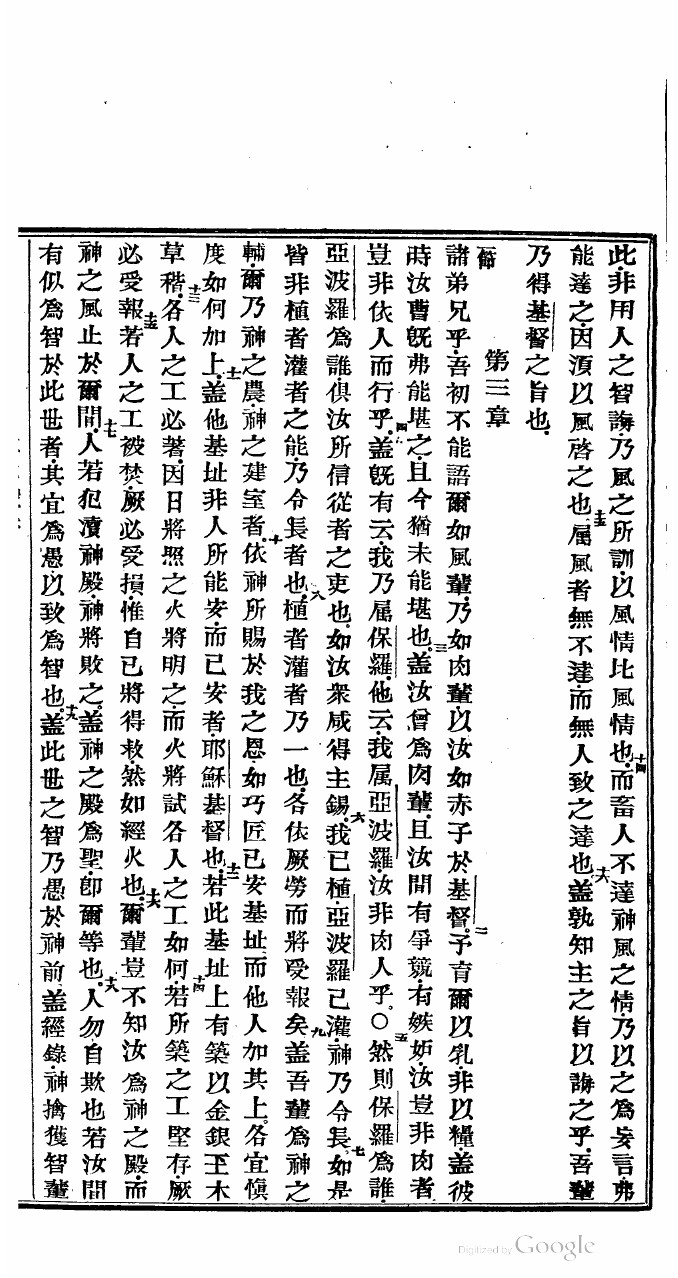 此.非用人之智誨.乃風之所訓.以風情比風情也.十四而畜人不達神風之情.乃以之爲妄言.弗
能達之.因須以風啓之也.十五屬風者無不達.而無人致之達也.十六盖孰知主之旨以誨之乎.吾輩
乃得基督之旨也.
第三章
一節
諸弟兄乎.吾初不能語爾如風輩.乃如肉輩.以汝如赤子於基督.二予育爾以乳.非以糧.盖彼
時汝曹旣弗能堪之.且今猶未能堪也.三盖汝曾爲肉輩.且汝間有爭競.有嫉妬.汝豈非肉者.
豈非依人而行乎.四盖旣有云.我乃屬保羅.他云.我属亞波羅.汝非肉人乎.○五然則保羅爲誰.
亞波羅爲誰.俱汝所信從者之吏也.如汝衆咸得主錫.六我已植.亞波羅已灌.神乃令長.七如是
皆非植者灌者之能.乃令長者也.八植者灌者乃一也.各依厥勞而將受報矣.九盖吾輩爲神之
輔.爾乃神之農.神之建室者.十依神所賜於我之恩.如巧匠已安基址.而他人加其上.各宜愼
度如何加上.十一盖他基址非人所能安.而已安者耶穌基督也.十二若此基址上有築以金銀玉木
草稭.十三各人之工必著.因日將照之.火將明之.而火將試各人之工如何.十四若所築之工堅存.厥
必受報.十五若人之工被焚.厥必受損.惟自已將得救.然如經火也.十六爾輩豈不知汝爲神之殿.而
神之風止於爾間.十七人若犯瀆神殿.神將敗之.盖神之殿爲聖.卽爾等也.十八人勿自欺也.若汝間
有似爲智於此世者.其宜爲愚以致爲智也.十九盖此世之智.乃愚於神前.盖經錄.神擒獲智輩
Digitized by Google